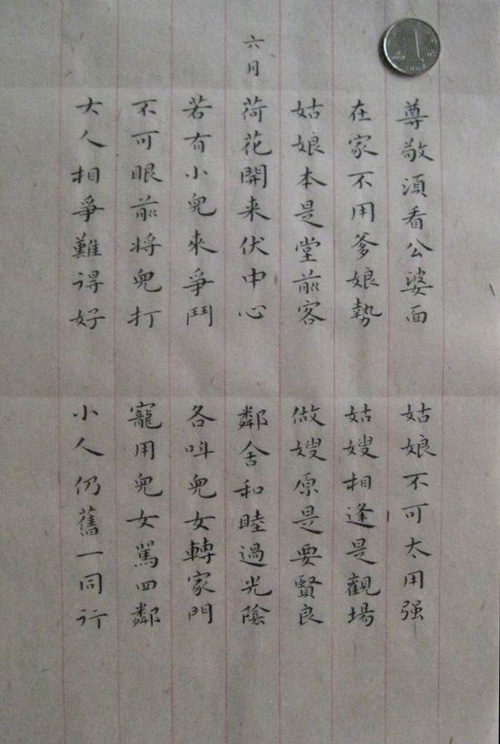 尊敬須看公婆面 姑娘不可太用强
在家不用爹娘勢 姑嫂相逢是觀場
姑娘本是堂前客 做嫂原是要賢良
六月
荷花開来伏中心 鄰舍和睦過光陰
若有小兒來爭鬥 各呌兒女轉家門
不可眼前将兒打 寵用兒女罵四鄰
大人相爭難得好 小人仍舊一同行
1